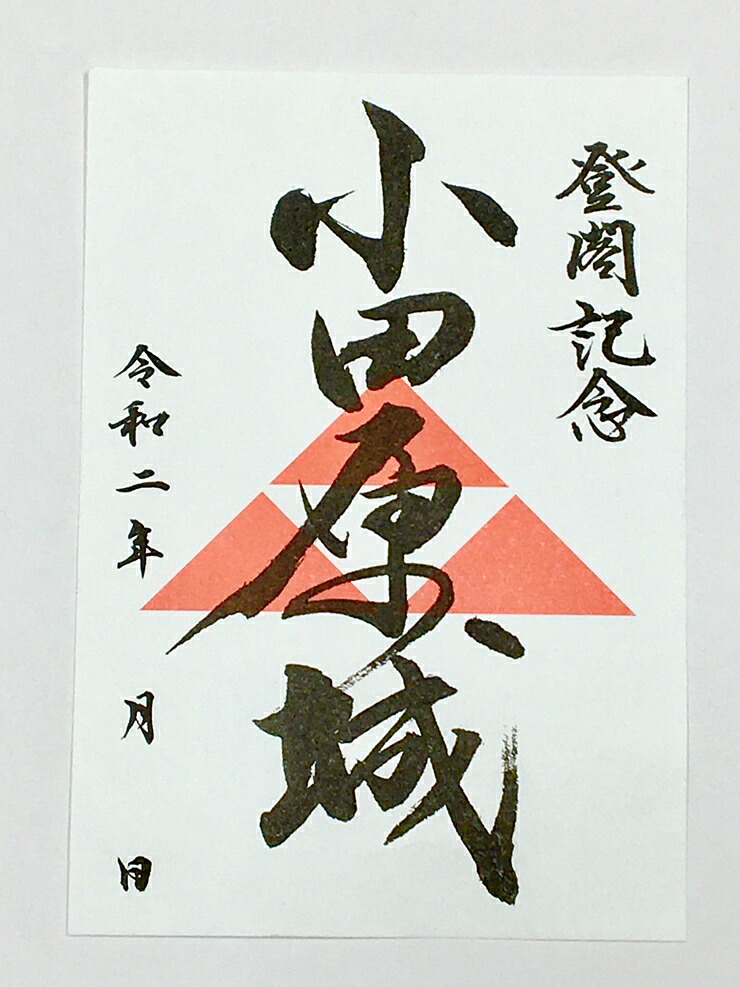 登閣記念
小田原城
令和二年 月 日